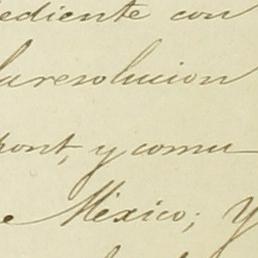 ediente con
la resolucion
pont, y comu
e Mexico; Y